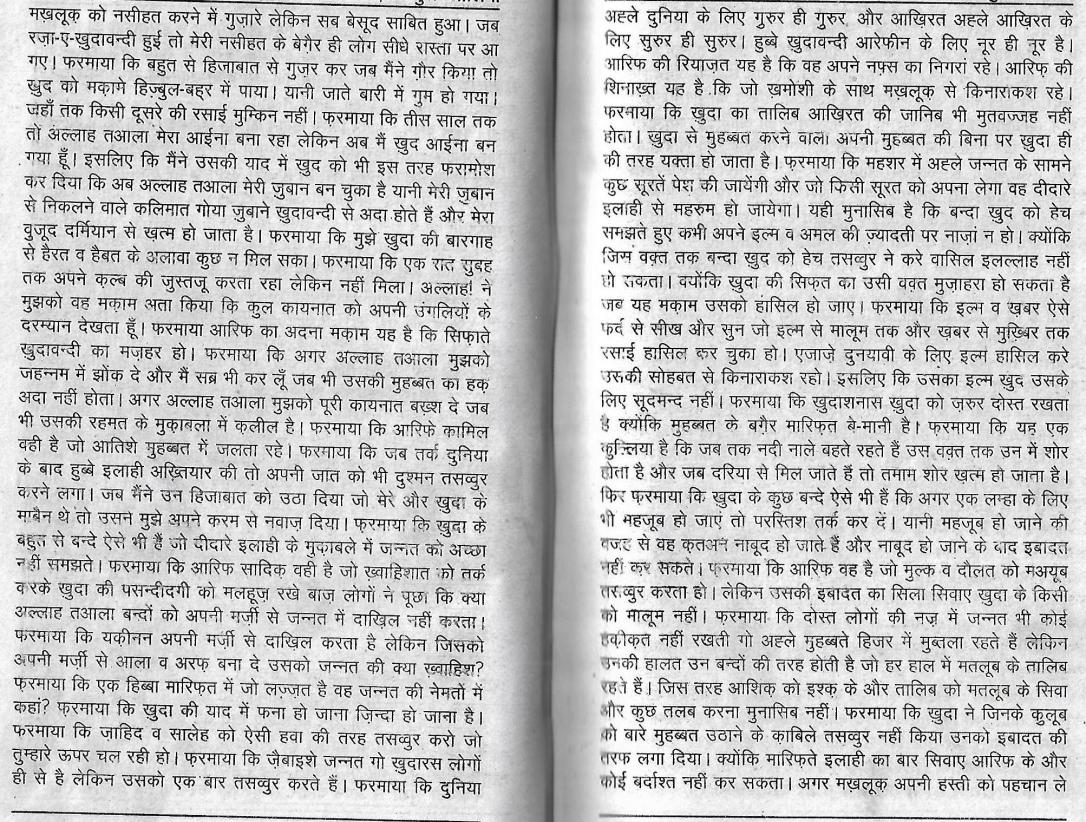 मख़लूक़ को नसीहत करने में गुज़ारे लेकिन सब बेसूद साबित हुआ। जब
रज़ा-ए-खुदावन्दी हुई तो मेरी नसीहत के बेग़ैर ही लोग सीधे रास्ता पर आ
गए। फ़रमाया कि बहुत से हिजाबात से गुज़र कर जब मैंने ग़ौर किया तो
खुद को मक़ामे हिज़्बुल-बहर में पाया। यानी जाते बारी में गुम हो गया।
जहाँ तक किसी दूसरे की रसाई मुम्किन नहीं। फ़रमाया कि तीस साल तक
तो अल्लाह तआला मेरा आईना बना रहा लेकिन अब मैं खुद आईना बन
गया हूँ। इसलिए कि मैंने उसकी याद में खुद को भी इस तरह फ़रामोश
कर दिया कि अब अल्लाह तआला मेरी जुबान बन चुका है यानी मेरी जुबान
से निकलने वाले कलिमात गोया जुबाने खुदावन्दी से अदा होते हैं और मेरा
वुजूद दर्मियान से ख़त्म हो जाता है। फ़रमाया कि मुझे खुदा की बारगाह
से हैरत व हैबत के अलावा कुछ न मिल सका। फ़रमाया कि एक रात सुबह
तक अपने क़ल्ब की जुस्तजू करता रहा लेकिन नहीं मिला। अल्लाह! ने
मुझको वह मक़ाम अता किया कि कुल कायनात को अपनी उंगलियों के
दरम्यान देखता हूँ। फ़रमाया आरिफ़ का अदना मक़ाम यह है कि सिफ़ाते
खुदावन्दी का मज़हर हो। फ़रमाया कि अगर अल्लाह तआला मुझको
जहन्नम में झोंक दे और मैं सब्र भी कर लूँ जब भी उसकी मुहब्बत का हक़
अदा नहीं होता। अगर अल्लाह तआला मुझको पूरी कायनात बख़्श दे जब
भी उसकी रहमत के मुक़ाबला में क़लील है। फ़रमाया कि आरिफ़े कामिल
वही है जो आतिशे मुहब्बत में जलता रहे। फ़रमाया कि जब तर्क दुनिया
के बाद हुब्बे इलाही अख़्तियार की तो अपनी जात को भी दुश्मन तसव्वुर
करने लगा। जब मैंने उन हिजाबात को उठा दिया जो मेरे और खुदा के
माबैन थे तो उसने मुझे अपने करम से नवाज़ दिया। फ़रमाया कि खुदा के
बहुत से बन्दे ऐसे भी हैं जो दीदारे इलाही के मुक़ाबले में जन्नत को अच्छा
नहीं समझते। फ़रमाया कि आरिफ़ सादिक़ वही है जो ख़्वाहिशात को तर्क
करके खुदा की पसन्दीदगी को मलहूज़ रखे बाज़ लोगों ने पूछा कि क्या
अल्लाह तआला बन्दों को अपनी मर्ज़ी से जन्नत में दाख़िल नहीं करता।
फ़रमाया कि यक़ीनन अपनी मर्ज़ी से दाख़िल करता है लेकिन जिसको
अपनी मर्ज़ी से आला व अरफ़ बना दे उसको जन्नत की क्या ख़्वाहिश?
फ़रमाया कि एक हिब्बा मारिफ़त में जो लज़्ज़त है वह जन्नत की नेमतों में
कहां? फ़रमाया कि खुदा की याद में फना हो जाना ज़िन्दा हो जाना है।
फ़रमाया कि ज़ाहिद व सालेह को ऐसी हवा की तरह तसव्वुर करो जो
तुम्हारे ऊपर चल रही हो। फ़रमाया कि ज़ेबाइशे जन्नत गो खुदारस लोगों
ही से है लेकिन उसको एक बार तसव्वुर करते हैं। फ़रमाया कि दुनिया
अह्ले दुनिया के लिए गुरुर ही गुरुर, और आख़िरत अह्ले आख़िरत के
लिए सुरुर ही सुरुर। हुब्बे खुदावन्दी आरेफीन के लिए नूर ही नूर है।
आरिफ की रियाज़त यह है कि वह अपने नफ़्स का निगरां रहे। आरिफ़ की
शिनाख़्त यह है कि जो ख़मोशी के साथ मख़लूक़ से किनाराकश रहे।
फ़रमाया कि खुदा का तालिब आख़िरत की जानिब भी मुतवज्जह नहीं
होता। खुदा से मुहब्बत करने वाला अपनी मुहब्बत की बिना पर खुदा ही
की तरह यक्ता हो जाता है। फ़रमाया कि महशर में अह्ले जन्नत के सामने
कुछ सूरतें पेश की जायेंगी और जो किसी सूरत को अपना लेगा वह दीदारे
इलाही से महरुम हो जायेगा। यही मुनासिब है कि बन्दा खुद को हेच
समझते हुए कभी अपने इल्म व अमल की ज़्यादती पर नाज़ां न हो। क्योंकि
जिस वक़्त तक बन्दा खुद को हेच तसव्वुर ने करे वासिल इलल्लाह नहीं
हो सकता। क्योंकि खुदा की सिफ़त का उसी वक़्त मुज़ाहरा हो सकता है
जब यह मक़ाम उसको हांसिल हो जाए। फ़रमाया कि इल्म व ख़बर ऐसे
फर्द से सीख और सुन जो इल्म से मालूम तक और ख़बर से मुख़्बिर तक
रसाई हासिल कर चुका हो। एजाज़े दुनयावी के लिए इल्म हासिल करे
उसकी सोहबत से किनाराकश रहो। इसलिए कि उसका इल्म खुद उसके
लिए सूदमन्द नहीं। फ़रमाया कि खुदाशनास खुदा को ज़रुर दोस्त रखता
है क्योंकि मुहब्बत के बग़ैर मारिफ़त बे-मानी है। फ़रमाया कि यह एक
कुल्लिया है कि जब तक नदी नाले बहते रहते हैं उस वक़्त तक उन में शोर
होता है और जब दरिया से मिल जाते हैं तो तमाम शोर ख़त्म हो जाना है।
फिर फ़रमाया कि खुदा के कुछ बन्दे ऐसे भी हैं कि अगर एक लम्हा के लिए
भी महजूब हो जाएं तो परस्तिश तर्क कर दें। यानी महजूब हो जाने की
वजह से वह क़तअन नाबूद हो जाते हैं और नाबूद हो जाने के बाद इबादत
नहीं कर सकते। फ़रमाया कि आरिफ वह है जो मुल्क व दौलत को मअयूब
तसव्वुर करता हो। लेकिन उसकी इबादत का सिला सिवाए खुदा के किसी
को मालूम नहीं। फ़रमाया कि दोस्त लोगों की नज़ में जन्नत भी कोई
हक़ीक़त नहीं रखती गो अह्ले मुहब्बते हिजर में मुब्तला रहते हैं लेकिन
उनकी हालत उन बन्दों की तरह होती है जो हर हाल में मतलूब के तालिब
रहते हैं। जिस तरह आशिक़ को इश्क़ के और तालिब को मतलूब के सिवा
और कुछ तलब करना मुनासिब नहीं। फ़रमाया कि खुदा ने जिनके कुलूब
को बारे मुहब्बत उठाने के क़ाबिले तसव्वुर नहीं किया उनको इबादत की
तरफ लगा दिया। क्योंकि मारिफ़ते इलाही का बार सिवाए आरिफ के और
कोई बर्दाश्त नहीं कर सकता। अगर मख़लूक़ अपनी हस्ती को पहचान ले